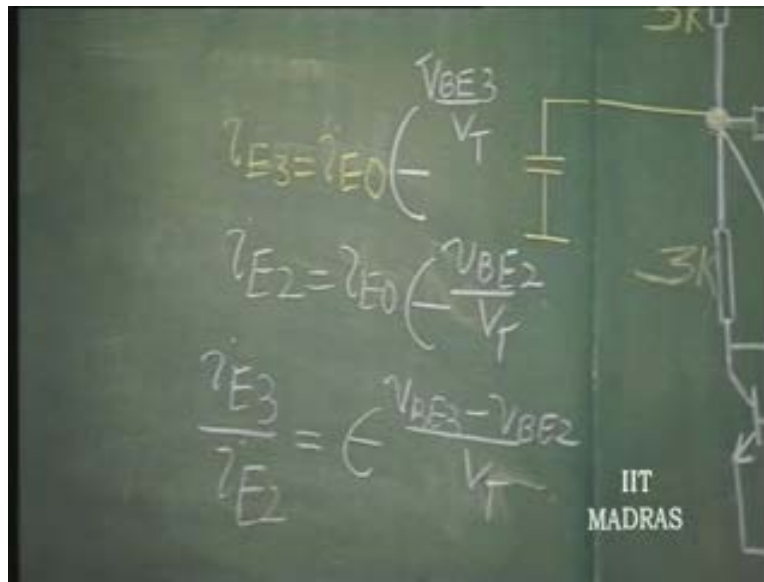 3K
i_E3 = i_E0 ϵ^(v_BE3/V_T)
3K
i_E2 = i_E0 ϵ^(v_BE2/V_T)
i_E3/i_E2 = ϵ^((v_BE3 - v_BE2)/V_T)
IIT
MADRAS